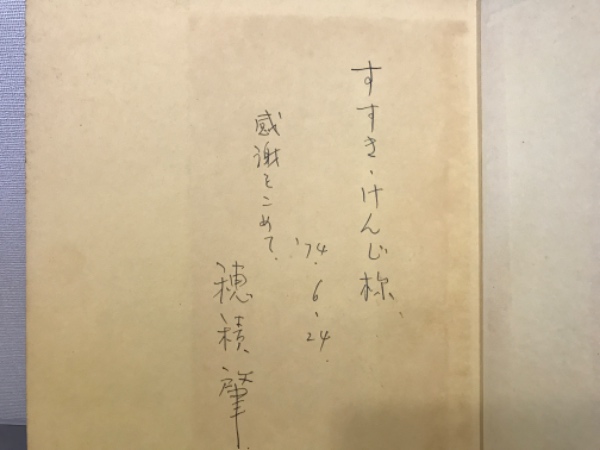 すすき・けんじ様、
'74.6.24.
感謝をこめて、
穂積肇